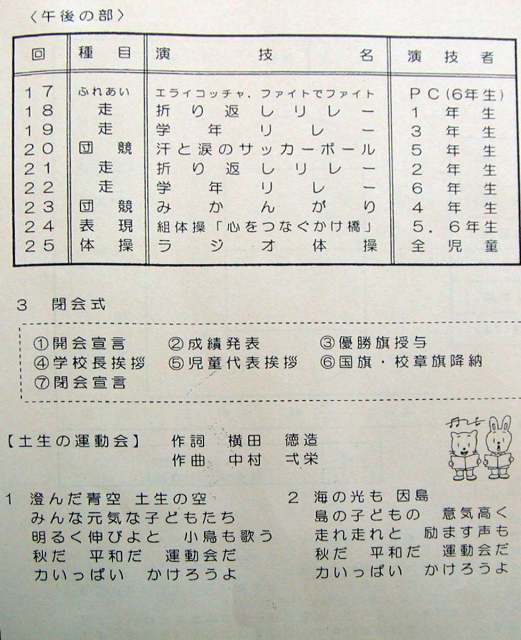 〈午後の部〉
回 種目 演技名 演技者
17 ふれあい エライコッチャ、ファイトでファイト PC(6年生)
18 走 折り返しリレー 1年生
19 走 学年リレー 3年生
20 団競 汗と涙のサッカーボール 5年生
21 走 折り返しリレー 2年生
22 走 学年リレー 6年生
23 団競 みかんがり 4年生
24 表現 組体操「心をつなぐかけ橋」 5.6年生
25 体操 ラジオ体操 全児童
3 閉会式
①開会宣言 ②成績発表 ③優勝旗授与
④学校長挨拶 ⑤児童代表挨拶 ⑥国旗・校章旗降納
⑦閉会宣言
【土生の運動会】 作詞 横田 徳造
作曲 中村 弌栄
1 澄んだ青空 土生の空
みんな元気な子どもたち
明るく伸びよと 小鳥も歌う
秋だ 平和だ 運動会だ
力いっぱい かけろうよ
2 海の光も 因島
島の子どもの 意気高く
走れ走れと 励ます声も
秋だ 平和だ 運動会だ
力いっぱい かけろうよ